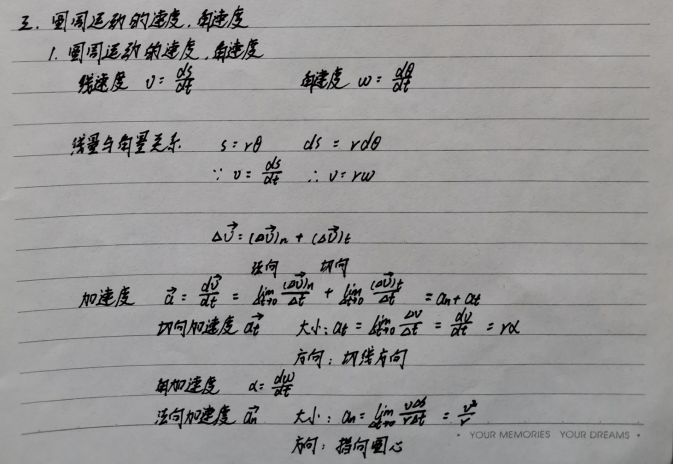 三. 圆周运动的速度、角速度
1. 圆周运动的速度、角速度
线速度 v = ds/dt 角速度 w = dθ/dt
线量与角量关系 s = rθ ds = rdθ
∵ v = ds/dt ∴ v = rw
Δv⃗ = (Δv⃗)n + (Δv⃗)t
法向 切向
加速度 a⃗ = dv⃗/dt = lim Δt→0 (Δv⃗)n/Δt + lim Δt→0 (Δv⃗)t/Δt = an + at
切向加速度 a⃗t 大小: at = lim Δt→0 Δv/Δt = dv/dt = rα
方向: 切线方向
角加速度 α = dw/dt
法向加速度 a⃗n 大小: an = lim Δt→0 vΔs/rΔt = v²/r
方向: 指向圆心
• YOUR MEMORIES YOUR DREAMS •